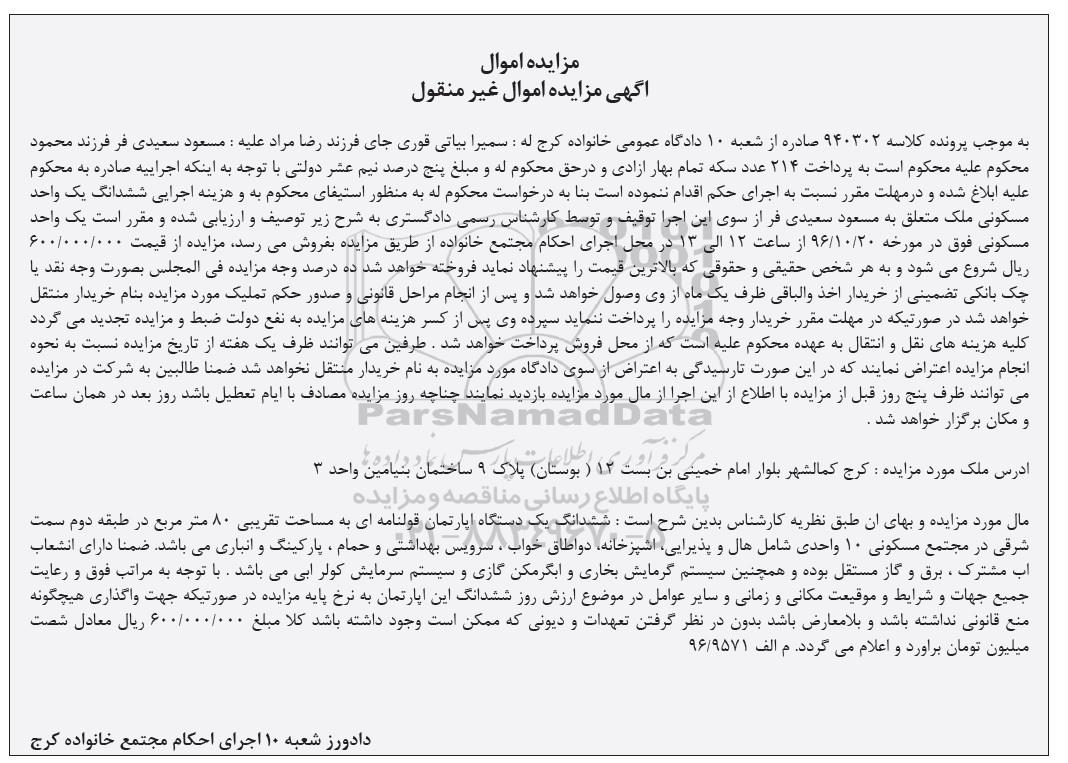 مزایده اموال
اگهی مزایده اموال غیر منقول
به موجب پرونده کلاسه ۹۴۰۳۰۲ صادره از شعبه ۱۰ دادگاه عمومی خانواده کرج له : سمیرا بیاتی قوری جای فرزند رضا مراد علیه : مسعود سعیدی فر فرزند محمود
محکوم علیه محکوم است به پرداخت ۲۱۴ عدد سکه تمام بهار ازادی و درحق محکوم له و مبلغ پنج درصد نیم عشر دولتی با توجه به اینکه اجراییه صادره به محکوم
علیه ابلاغ شده و درمهلت مقرر نسبت به اجرای حکم اقدام ننموده است بنا به درخواست محکوم له به منظور استیفای محکوم به و هزینه اجرایی ششدانگ یک واحد
مسکونی ملک متعلق به مسعود سعیدی فر از سوی این اجرا توقیف و توسط کارشناس رسمی دادگستری به شرح زیر توصیف و ارزیابی شده و مقرر است یک واحد
مسکونی فوق در مورخه ۹۶/۱۰/۲۰ از ساعت ۱۲ الی ۱۳ در محل اجرای احکام مجتمع خانواده از طریق مزایده بفروش می رسد، مزایده از قیمت ۶۰۰/۰۰۰/۰۰۰
ریال شروع می شود و به هر شخص حقیقی و حقوقی که بالاترین قیمت را پیشنهاد نماید فروخته خواهد شد ده درصد وجه مزایده فی المجلس بصورت وجه نقد یا
چک بانکی تضمینی از خریدار اخذ والباقی ظرف یک ماه از وی وصول خواهد شد و پس از انجام مراحل قانونی و صدور حکم تملیک مورد مزایده بنام خریدار منتقل
خواهد شد در صورتیکه در مهلت مقرر خریدار وجه مزایده را پرداخت ننماید سپرده وی پس از کسر هزینه های مزایده به نفع دولت ضبط و مزایده تجدید می گردد
کلیه هزینه های نقل و انتقال به عهده محکوم علیه است که از محل فروش پرداخت خواهد شد . طرفین می توانند ظرف یک هفته از تاریخ مزایده نسبت به نحوه
انجام مزایده اعتراض نمایند که در این صورت تارسیدگی به اعتراض از سوی دادگاه مورد مزایده به نام خریدار منتقل نخواهد شد ضمنا طالبین به شرکت در مزایده
می توانند ظرف پنج روز قبل از مزایده با اطلاع از این اجرا از مال مورد مزایده بازدید نمایند چناچه روز مزایده مصادف با ایام تعطیل باشد روز بعد در همان ساعت
و مکان برگزار خواهد شد .
ParsNamadData
مرکز فرآوری اطلاعات پارس نماد داده ها
ادرس ملک مورد مزایده : کرج کمالشهر بلوار امام خمینی بن بست ۱۲ ( بوستان) پلاک ۹ ساختمان بنیامین واحد ۳
پایگاه اطلاع رسانی مناقصه و مزایده
مال مورد مزایده و بهای ان طبق نظریه کارشناس بدین شرح است : ششدانگ یک دستگاه اپارتمان قولنامه ای به مساحت تقریبی ۸۰ متر مربع در طبقه دوم سمت
۰۲۱-۸۸۳۴۹۶۷۰-۵
شرقی در مجتمع مسکونی ۱۰ واحدی شامل هال و پذیرایی، اشپزخانه، دواطاق خواب ، سرویس بهداشتی و حمام ، پارکینگ و انباری می باشد. ضمنا دارای انشعاب
اب مشترک ، برق و گاز مستقل بوده و همچنین سیستم گرمایش بخاری و ابگرمکن گازی و سیستم سرمایش کولر ابی می باشد . با توجه به مراتب فوق و رعایت
جمیع جهات و شرایط و موقیعت مکانی و زمانی و سایر عوامل در موضوع ارزش روز ششدانگ این اپارتمان به نرخ پایه مزایده در صورتیکه جهت واگذاری هیچگونه
منع قانونی نداشته باشد و بلامعارض باشد بدون در نظر گرفتن تعهدات و دیونی که ممکن است وجود داشته باشد کلا مبلغ ۶۰۰/۰۰۰/۰۰۰ ریال معادل شصت
میلیون تومان براورد و اعلام می گردد. م الف ۹۶/۹۵۷۱
دادورز شعبه ۱۰ اجرای احکام مجتمع خانواده کرج